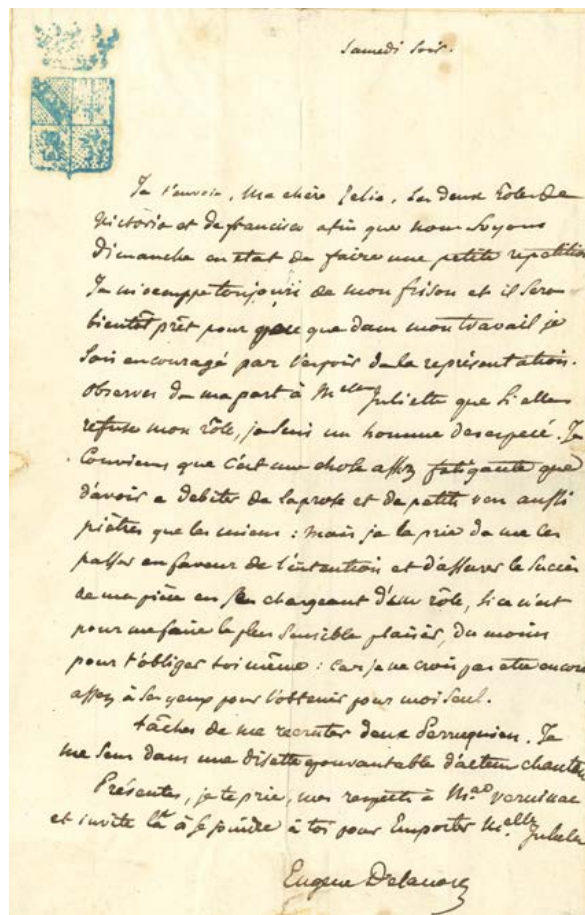 Samedi Soir.
Je t'envoie, Ma chère Félix, les deux rôles de
Victoria et de francisco afin que nous Soyons
dimanche en état de faire une petite repetition
Je m'occuppe toujours de mon frison et il sera
bientôt prêt pour que dans mon travail je
Sois encouragé par l'espoir de la représentation.
observes de ma part à Melle Juliette que Si elle
refuse mon rôle, je suis un homme desespéré. Je
Conviens que c'est une chose assez fatigante que
d'avoir a debiter de la prose et de petits vers aussi
piètres que les miens : mais je la prie de me les
passer en faveur de l'intention et d'assurer le Succès
de ma pièce en Se chargeant d'un rôle, Si ce n'est
pour me faire le plus Sensible plaisir, du moins
pour t'obliger toi même : car je ne crois pas etre encore
assez à Ses yeux pour l'obtenir pour moi Seul.
tâches de me recruter deux Perruquiers. Je
me Sens dans une disette epouvantable d'acteurs chantan
Présentes, je te prie, mes respects à Mad Verninac
et invite la à Se joindre à toi pour Emporter Melle Juliette
Eugene Delacroix